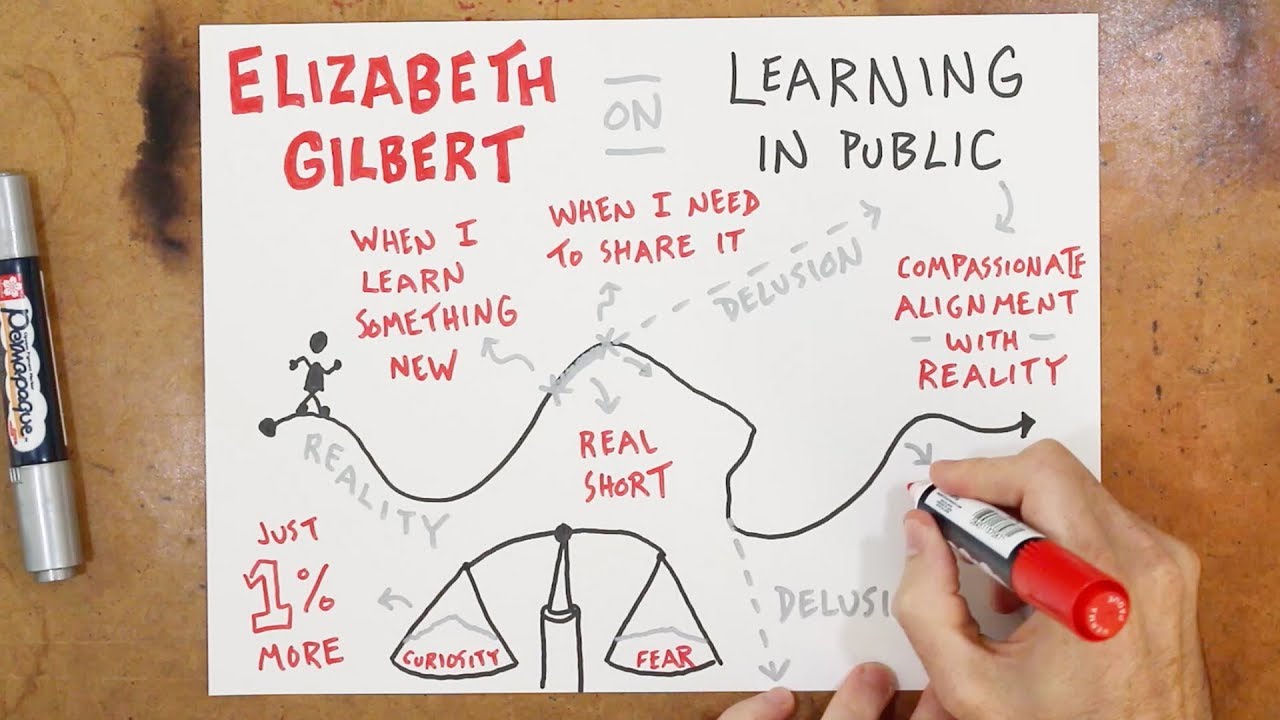 ELIZABETH
GILBERT
ON
LEARNING
IN PUBLIC
WHEN I
LEARN
SOMETHING
NEW
WHEN I NEED
TO SHARE IT
DELUSION
COMPASSIONATE
ALIGNMENT
- WITH -
REALITY
REALITY
REAL
SHORT
JUST
1%
MORE
CURIOSITY
FEAR
DELUSI
Permapaque